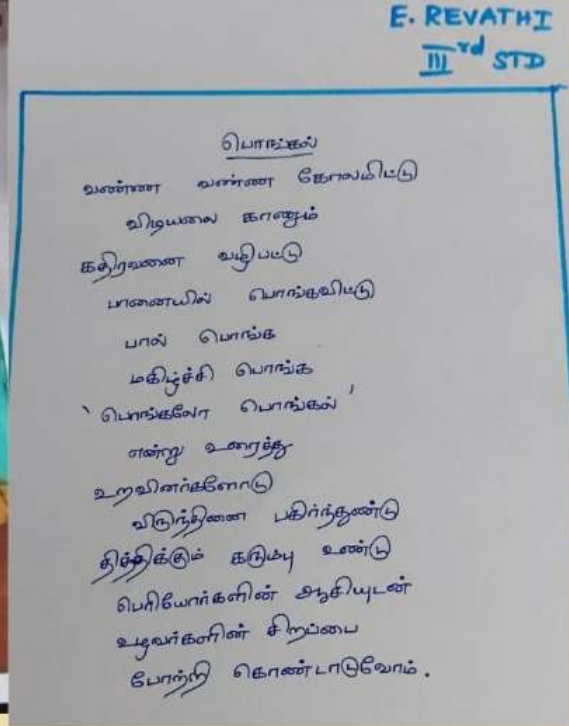 E. REVATHI
III rd STD
பொங்கல்
வண்ண வண்ண கோலமிட்டு
விடியலை காணும்
கதிரவனை வழிபட்டு
பானையில் பொங்கவிட்டு
பால் பொங்க
மகிழ்ச்சி பொங்க
'பொங்கலோ பொங்கல்'
என்று உரைத்து
உறவினர்களோடு
விருந்தினை பகிர்ந்துண்டு
தித்திக்கும் கரும்பு உண்டு
பெரியோர்களின் ஆசியுடன்
உழவர்களின் சிறப்பை
போற்றி கொண்டாடுவோம்.